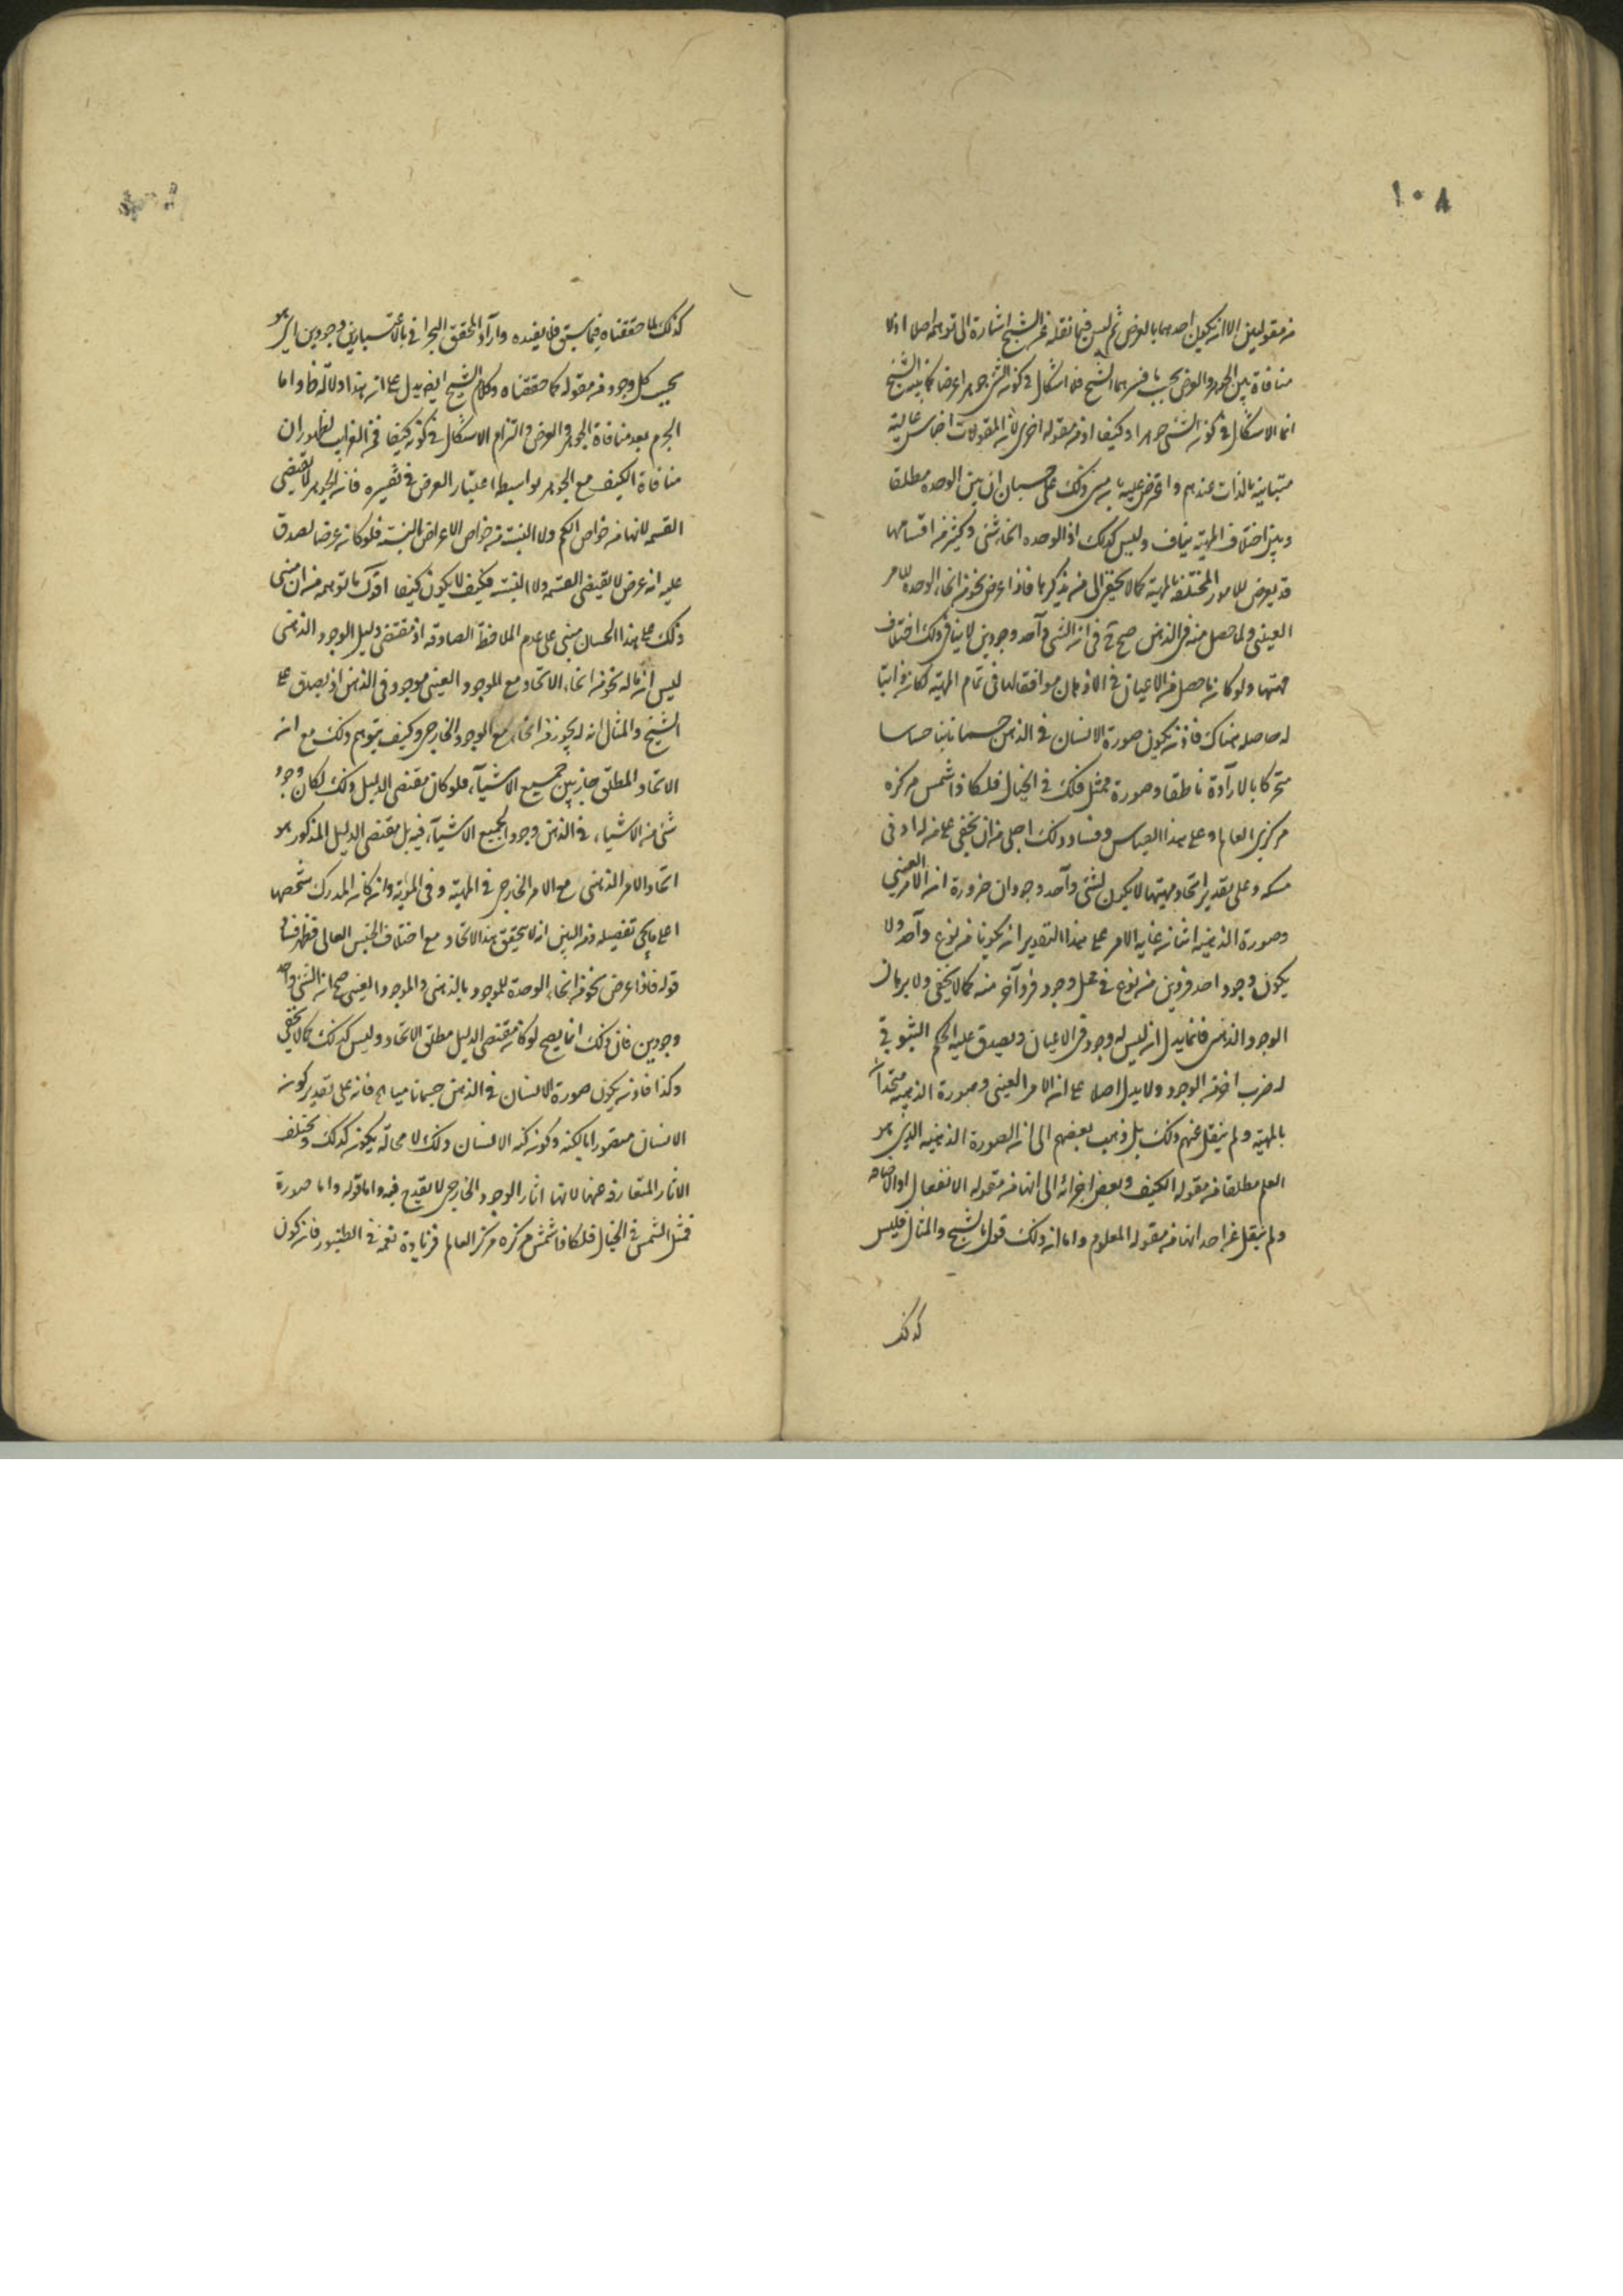 ١٠٨
من مقولتين الا ان يكون احدهما بالعرض ثم ليس فيما نقله عن الشيخ اشارة الى توهمه اصلا اذ لا
منافاة بين الجوهر والعرض بحسب ما فسرهما الشيخ فلا اشكال في كونه الشئ جوهرا وعرضا كما بينه الشيخ
انما الاشكال في كونه الشئ جوهرا وكيفا او من مقوله اخرى لان المقولات اجناس عالية
متباينة بالذات عندهم واعترض عليه بانه مبنى ذلك على حسبان ان بين الوحدة مطلقا
وبين اختلاف المهية تناف وليس كذلك اذ الوحدة انحاء شتى وكثير من اقسامها
قد يعرض للامور المختلفة بالمهية كما لا يخفى الى من يذكرها فاذا عرض نحو من انحاء الوحدة للامر
العيني ولما حصل منه في الذهن صح في ان الشئ واحد وجودين لا ينافي ذلك اختلاف
مهيتها ولو كان ما حصل من الاعيان في الاذهان موافقا لما في تمام المهية لكان ذواتيا
له حاصله هناك فاذن يكون صورة الانسان في الذهن جسما ناميا حساسا
متحركا بالارادة ناطقا وصورة ممثل فلك في الخيال فلكا ذا شمس مركزه
مركزي العالم وعلى هذا القياس وفساد ذلك اجلى من ان يخفى على من له ادنى
مسكه وعلى تقدير اتحاد مهيتها لا يكون لشئ واحد وجودان ضرورة ان الامر العيني
وصورة الذهنية اثنان غاية الامر على هذا التقدير ان يكونا من نوع واحد ولا
يكون وجود احد فردين من نوع في محل وجود فرد آخر منه كما لا يخفى ولا برهان
الوجود الذهني فانما يدل ان ليس له وجود في الاعيان ويصدق عليه الحكم الثبوتي
له ضرب اخر من الوجود ولا يدل اصلا على ان الامر العيني وصورة الذهنية متحدان
بالمهية ولم ينقل عنهم ذلك بل ذهب بعضهم الى ان الصورة الذهنية الذي هو
العلم مطلقا من مقوله الكيف وبعض اجزائه الى انها من مقوله الانفعال او الاضافه
ولم ينقل عن احد انها من مقوله المعلوم واما ان ذلك قول بالشبح والمثال فليس
كذلك
كذلك لما حققناه فيما سبق فلا يفيده وما اراد المحقق البحراني بالاعتبارين وجودين اى هو
بحسب كل وجود من مقوله كما حققناه وكلام الشيخ ايضا يدل على ان هذا دلالة ظ واما
الجزم بعد منافاة الجوهر والعرض والتزام الاشكال في كونه كيفا فمن الغرايب لظهور ان
منافاة الكيف مع الجوهر بواسطة اعتبار العرض في تفسيره فانه الجوهر لا يقتضي
القسمه لانها من خواص الكم ولا النسبة من خواص الاعراض النسبية فلو كان عرضا لصدق
عليه انه عرض لا يقتضي القسمة ولا النسبة فكيف لا يكون كيفا اقول ما توهمه من ان مبنى
ذلك على هذا الحسبان مبني على عدم الملاحظة الصادقه اذ مقتضى دليل الوجود الذهني
ليس ان ما له نحو من انحاء الاتحاد مع الموجود العيني موجود في الذهن اذ يصدق على
الشبح والمثال انه له نحو من انحاء مع الوجود الخارجي وكيف يتوهم ذلك مع ان
الاتحاد المطلق جاز بين جميع الاشياء فلو كان مقتضى الدليل ذلك لكان وجود
شئ من الاشياء في الذهن وجود الجميع الاشياء فيه بل مقتضى الدليل المذكور هو
اتحاد الامر الذهني مع الامر الخارجي في المهية وفي الهوية وان كان المدرك شخصها
على ما يجئ تفصيله ومن البين انه لا يتحقق هذا الاتحاد مع اختلاف الجنس العالى فظهر فساد
قوله فاذا عرض نحو من انحاء الوحدة للموجود بالذهني والموجود العيني صح ان الشئ واحد
وجودين فان ذلك انما يصح لو كان مقتضى الدليل مطلق الاتحاد وليس كذلك كما لا يخفى
وكذا فاذن يكون صورة الانسان في الذهن جسما ناميا اه فانه على تقدير كونه
الانسان متصورا بالكنه وكونه كنه الانسان ذلك لا محالة يكون كذلك وتختلف
الاثار المتعارفه عنها لانها اثار الوجود الخارجي لا يقدح فيه واما قوله واما صورة
تمثل الشمس في الخيال فلكا ذا شمس مركزه مركز العالم فزيادة نغمة في الطنبور فانه كون